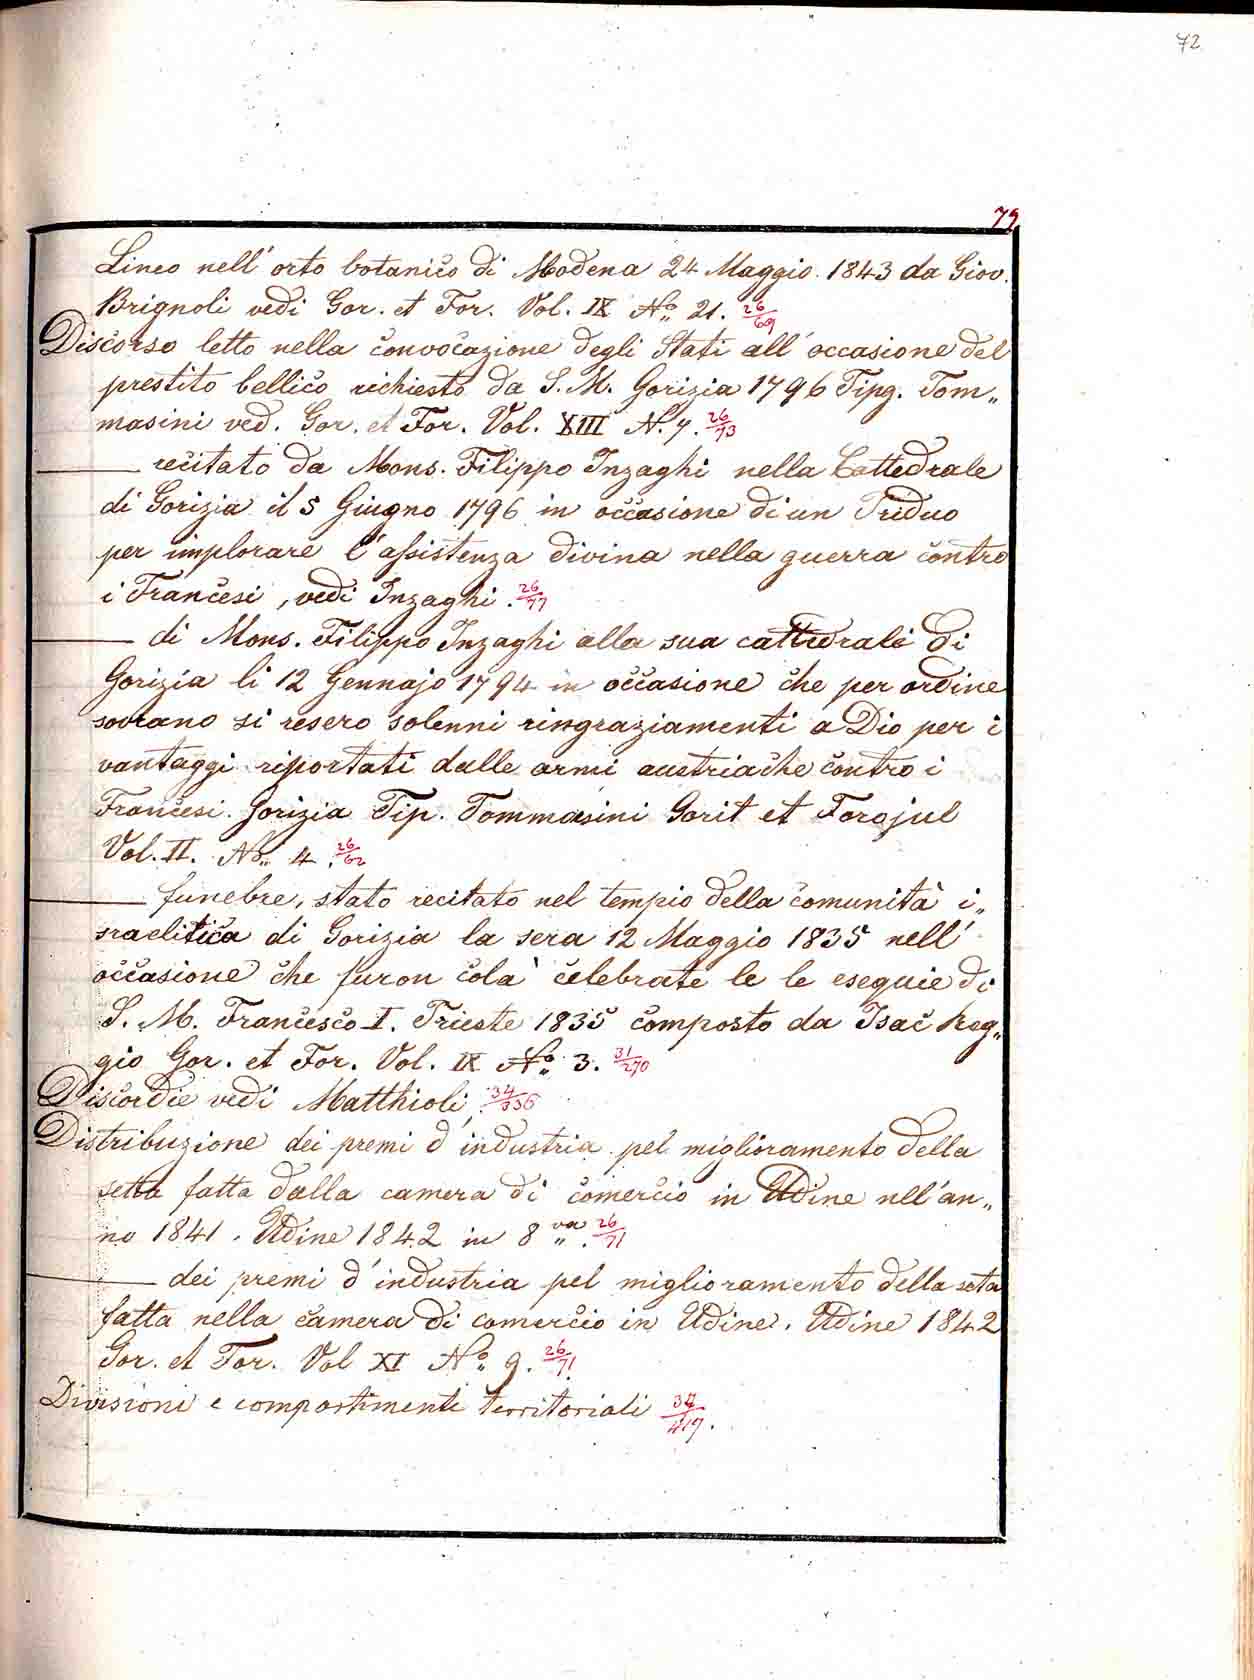 72
79
Lineo nell' orto botanico di Modena 24 Maggio. 1843 da Giov.
Brignoli vedi Gor. et For. Vol. IX No. 21. 26/69
Discorso letto nella convocazione degli Stati all' occasione del
prestito bellico richiesto da S. M. Gorizia 1796 Tipg. Tom„
masini ved. Gor. et For. Vol. XIII N. 7. 26/73
——— recitato da Mons. Filippo Inzaghi nella Cattedrale
di Gorizia il 5 Giugno 1796 in occasione di un Triduo
per implorare l'assistenza divina nella guerra contro
i Francesi, vedi Inzaghi. 26/77
——— di Mons. Filippo Inzaghi alla sua cattedrale di
Gorizia li 12 Gennajo 1794 in occasione che per ordine
sovrano si resero solenni ringraziamenti a Dio per i
vantaggi riportati dalle armi austriache contro i
Francesi. Gorizia Tip. Tommasini Gorit et Forojul
Vol. II. No. 4. 26/62
——— funebre, stato recitato nel tempio della comunità i„
sraelitica di Gorizia la sera 12 Maggio 1835 nell'
occasione che furon colà celebrate le le esequie di
S. M. Francesco I. Trieste 1835 composto da Isac Reg„
gio Gor. et For. Vol. IX No. 3. 31/270
Discordie vedi Matthioli.
Distribuzione dei premi d'industria pel miglioramento della
setta fatta dalla camera di comercio in Udine nell' an„
no 1841. Udine 1842 in 8va. 26/71
——— dei premi d'industria pel miglioramento della seta
fatta nella camera di comercio in Udine. Udine 1842
Gor. et For. Vol XI No. 9. 26/71.
Divisioni e compartimenti territoriali